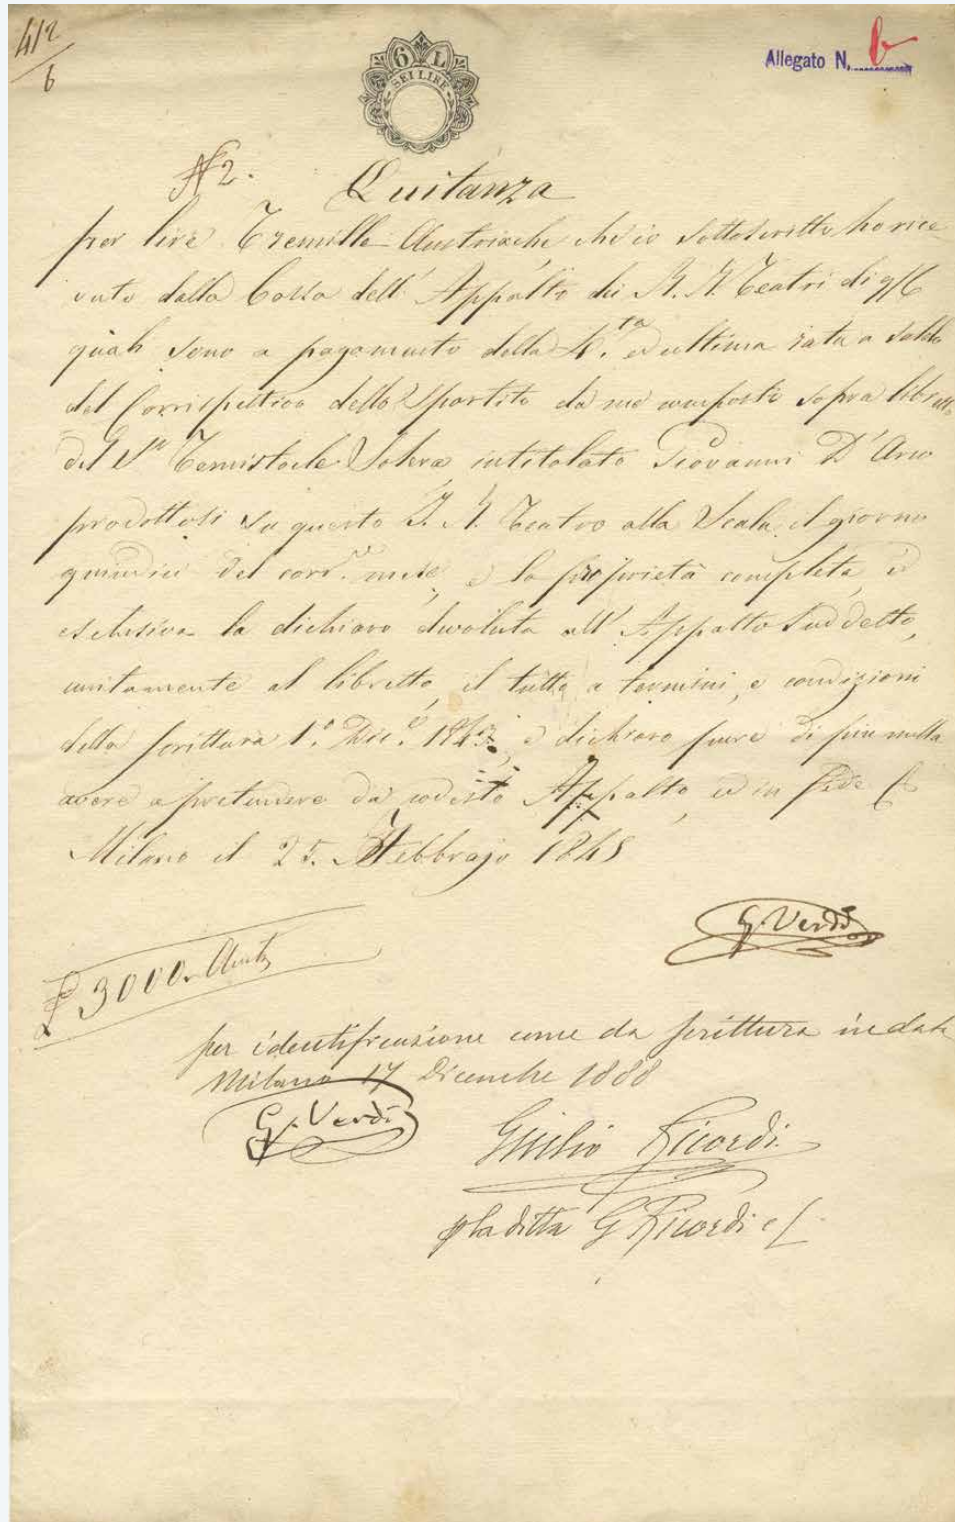 412
6
6 L
SEI LIRE
Allegato N. b
N 2.
Quitanza
per lire Tremille Austriache, che io sottoscritto ho rice=
vuto dalla Cassa dell' Appalto dei R. R. Teatri di
quali sono a pagamento della 4.ta ed ultima rata a saldo
del Corrispettivo dello Spartito da me composto sopra libretto
del Sr. Temistocle Solera intitolato Giovanni D'Arco
prodottosi su questo I. R. Teatro alla Scala il giorno
quindici del corre. mese, e la proprietà completa, ed
esclusiva la dichiaro devoluta all' Appalto Suddetto,
unitamente al libretto, il tutto a termini, e condizioni
della scrittura 1.o Dic.e 1843, e dichiaro pure di più nulla
avere a pretendere da codesto Appalto, ed in fede
Milano il 25. Febbrajo 1845
G. Verdi
£ 3000. Aust.
per identificazione come da scrittura in data
Milano 17 Dicembre 1888
G. Verdi
Giulio Ricordi
p la ditta G Ricordi e C.